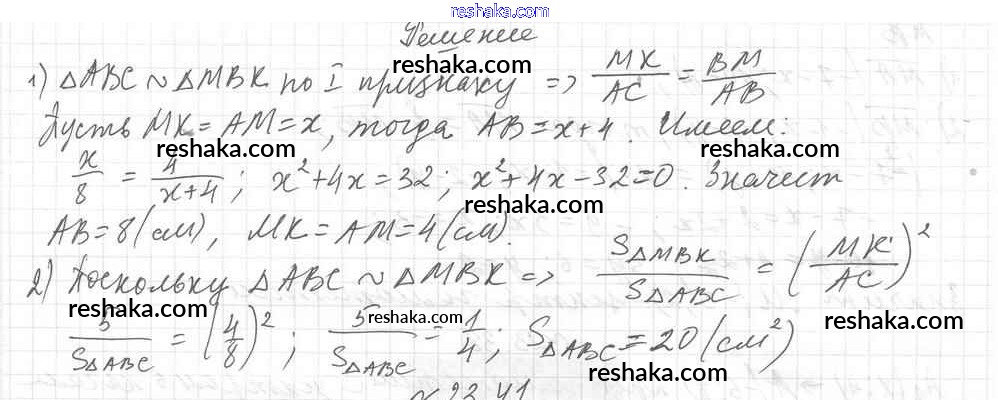 reshaka.com
Решение
1) △ABC ~ △MBK по I признаку => MK/AC = BM/AB
reshaka.com reshaka.com
Пусть MK = AM = x, тогда AB = x+4. Имеем:
reshaka.com reshaka.com
x/8 = 4/(x+4); x²+4x=32; x²+4x-32=0. Значит
reshaka.com
AB = 8 (см), MK = AM = 4 (см).
reshaka.com
2) Поскольку △ABC ~ △MBK => S△MBK/S△ABC = (MK/AC)²
reshaka.com reshaka.com reshaka.com
5/S△ABC = (4/8)²; 5/S△ABC = 1/4; S△ABC = 20 (см²)
reshaka.com